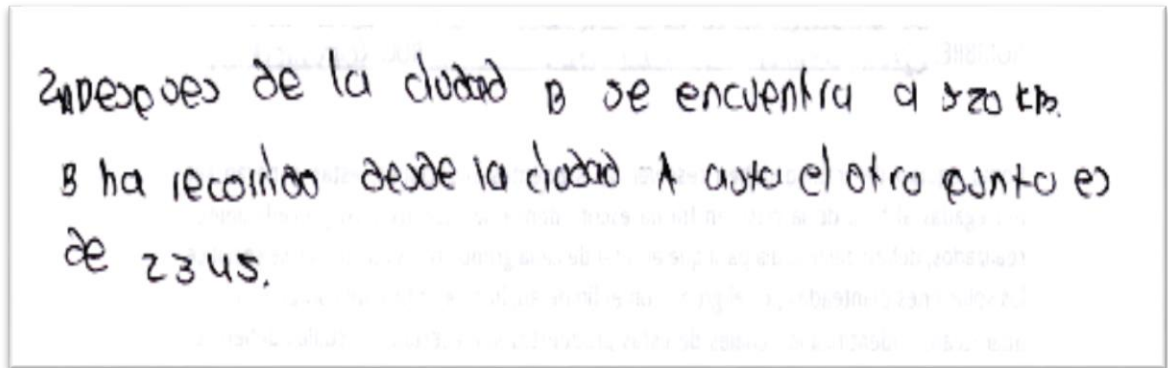 Despues de la ciudad B se encuentra a 520 km.
B ha recorrido desde la ciudad A asta el otro punto es
de 2345.